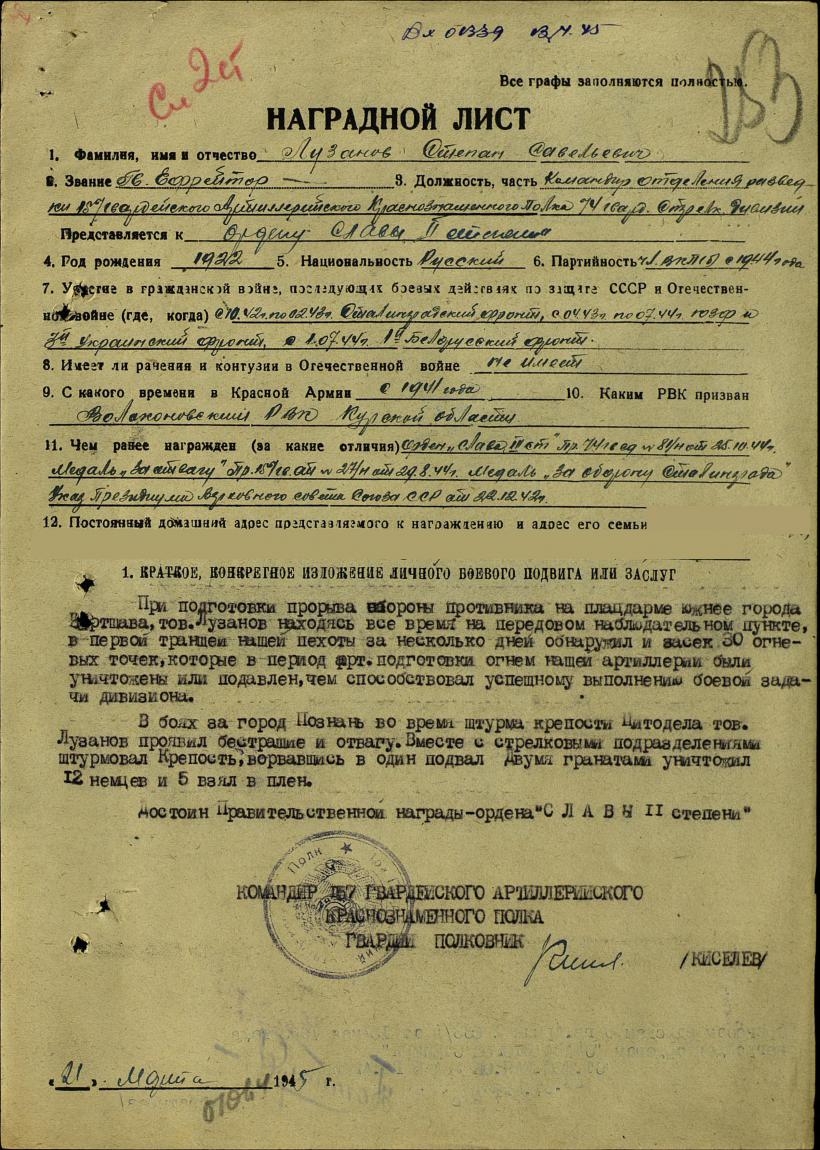 Вх 01339
Сл 2 ст
253
Все графы заполняются полностью.
НАГРАДНОЙ ЛИСТ
1. Фамилия, имя и отчество Лузанов Степан Савельевич
2. Звание Гв. Ефрейтор — 3. Должность, часть Командир отделения развед-
ки 157 гвардейского Артиллерийского Краснознаменного Полка 74 гвард. Стрелк. Дивизии
Представляется к ордену Славы II степени
4. Год рождения 1922 5. Национальность Русский 6. Партийность чл. ВКП(б) с 1944 года
7. Участие в гражданской войне, последующих боевых действиях по защите СССР и Отечествен-
ной войне (где, когда) с 10.42г. по 02.43г. Сталинградский фронт, с 04.43г. по 07.44г. ЮЗФ и
3й Украинский фронт, с 1.07.44г. 1й Белорусский фронт.
8. Имеет ли рачения и контузии в Отечественной войне не имеет
9. С какого времени в Красной Армии с 1941 года 10. Каким РВК призван
Волоконовский РВК Курской области
11. Чем ранее награжден (за какие отличия) Орден „Слава III ст" Пр. 74 гв сд № 81/н от 25.10.44г.
Медаль „За отвагу" Пр. 157 гв. ап № 27/н от 29.8.44г. Медаль „За оборону Сталинграда"
Указ Президиума Верховного совета Союза ССР от 22.12.42г.
12. Постоянный домашний адрес представляемого к награждению и адрес его семьи
1. КРАТКОЕ, КОНКРЕТНОЕ ИЗЛОЖЕНИЕ ЛИЧНОГО БОЕВОГО ПОДВИГА ИЛИ ЗАСЛУГ
При подготовки прорыва обороны противника на плацдарме южнее города
Вартшава, тов. Лузанов находясь все время на передовом наблюдательном пункте,
в первой траншеи нашей пехоты за несколько дней обнаружил и засек 30 огне-
вых точек, которые в период арт. подготовки огнем нашей артиллерии были
уничтожены или подавлен, чем способствовал успешному выполнению боевой зада-
чи дивизиона.
В боях за город Познань во время штурма крепости Цитодела тов.
Лузанов проявил бестрашие и отвагу. Вместе с стрелковыми подразделениями
штурмовал Крепость, ворвавшись в один подвал Двумя гранатами уничтожил
12 немцев и 5 взял в плен.
Достоин Правительственной награды-ордена "С Л А В Ы II степени"
КОМАНДИР 157 ГВАРДЕЙСКОГО АРТИЛЛЕРИЙСКОГО
КРАСНОЗНАМЕННОГО ПОЛКА
ГВАРДИИ ПОЛКОВНИК
/КИСЕЛЕВ/
„21" Марта 1945 г.